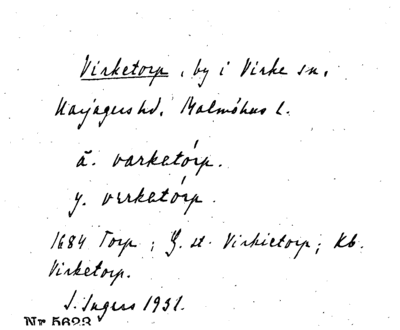 Virketorp, by i Virke sn,
Harjagers hd. Malmöhus l.
ä. varketórp.
y. verketórp.
1684 Torp; G. st. Virkietorp; Kb.
Virketorp.
S. Ingers 1931.
Nr 5623